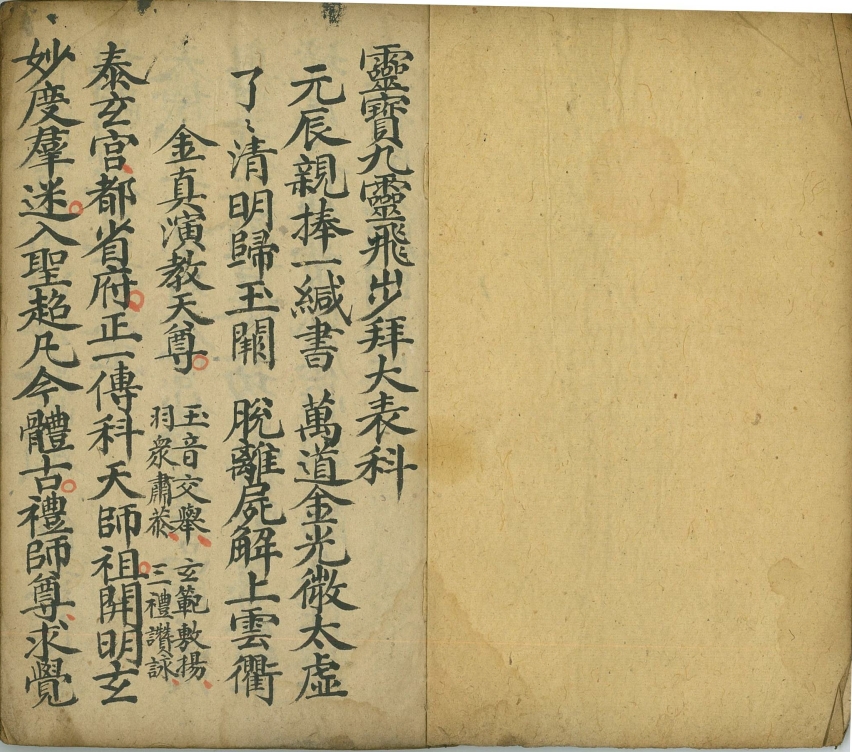 靈寶九靈飛步拜大表科
元辰親捧一緘書 萬道金光徹太虛
了〻清明歸玉闕 脫離屍解上雲衢
金真演教天尊 玉音交舉 玄範敷揚
羽衆肅恭 三禮讚詠
泰玄宮都省府正一傳科天師祖開明玄
妙度羣迷入聖超凡今體古禮師尊求覺